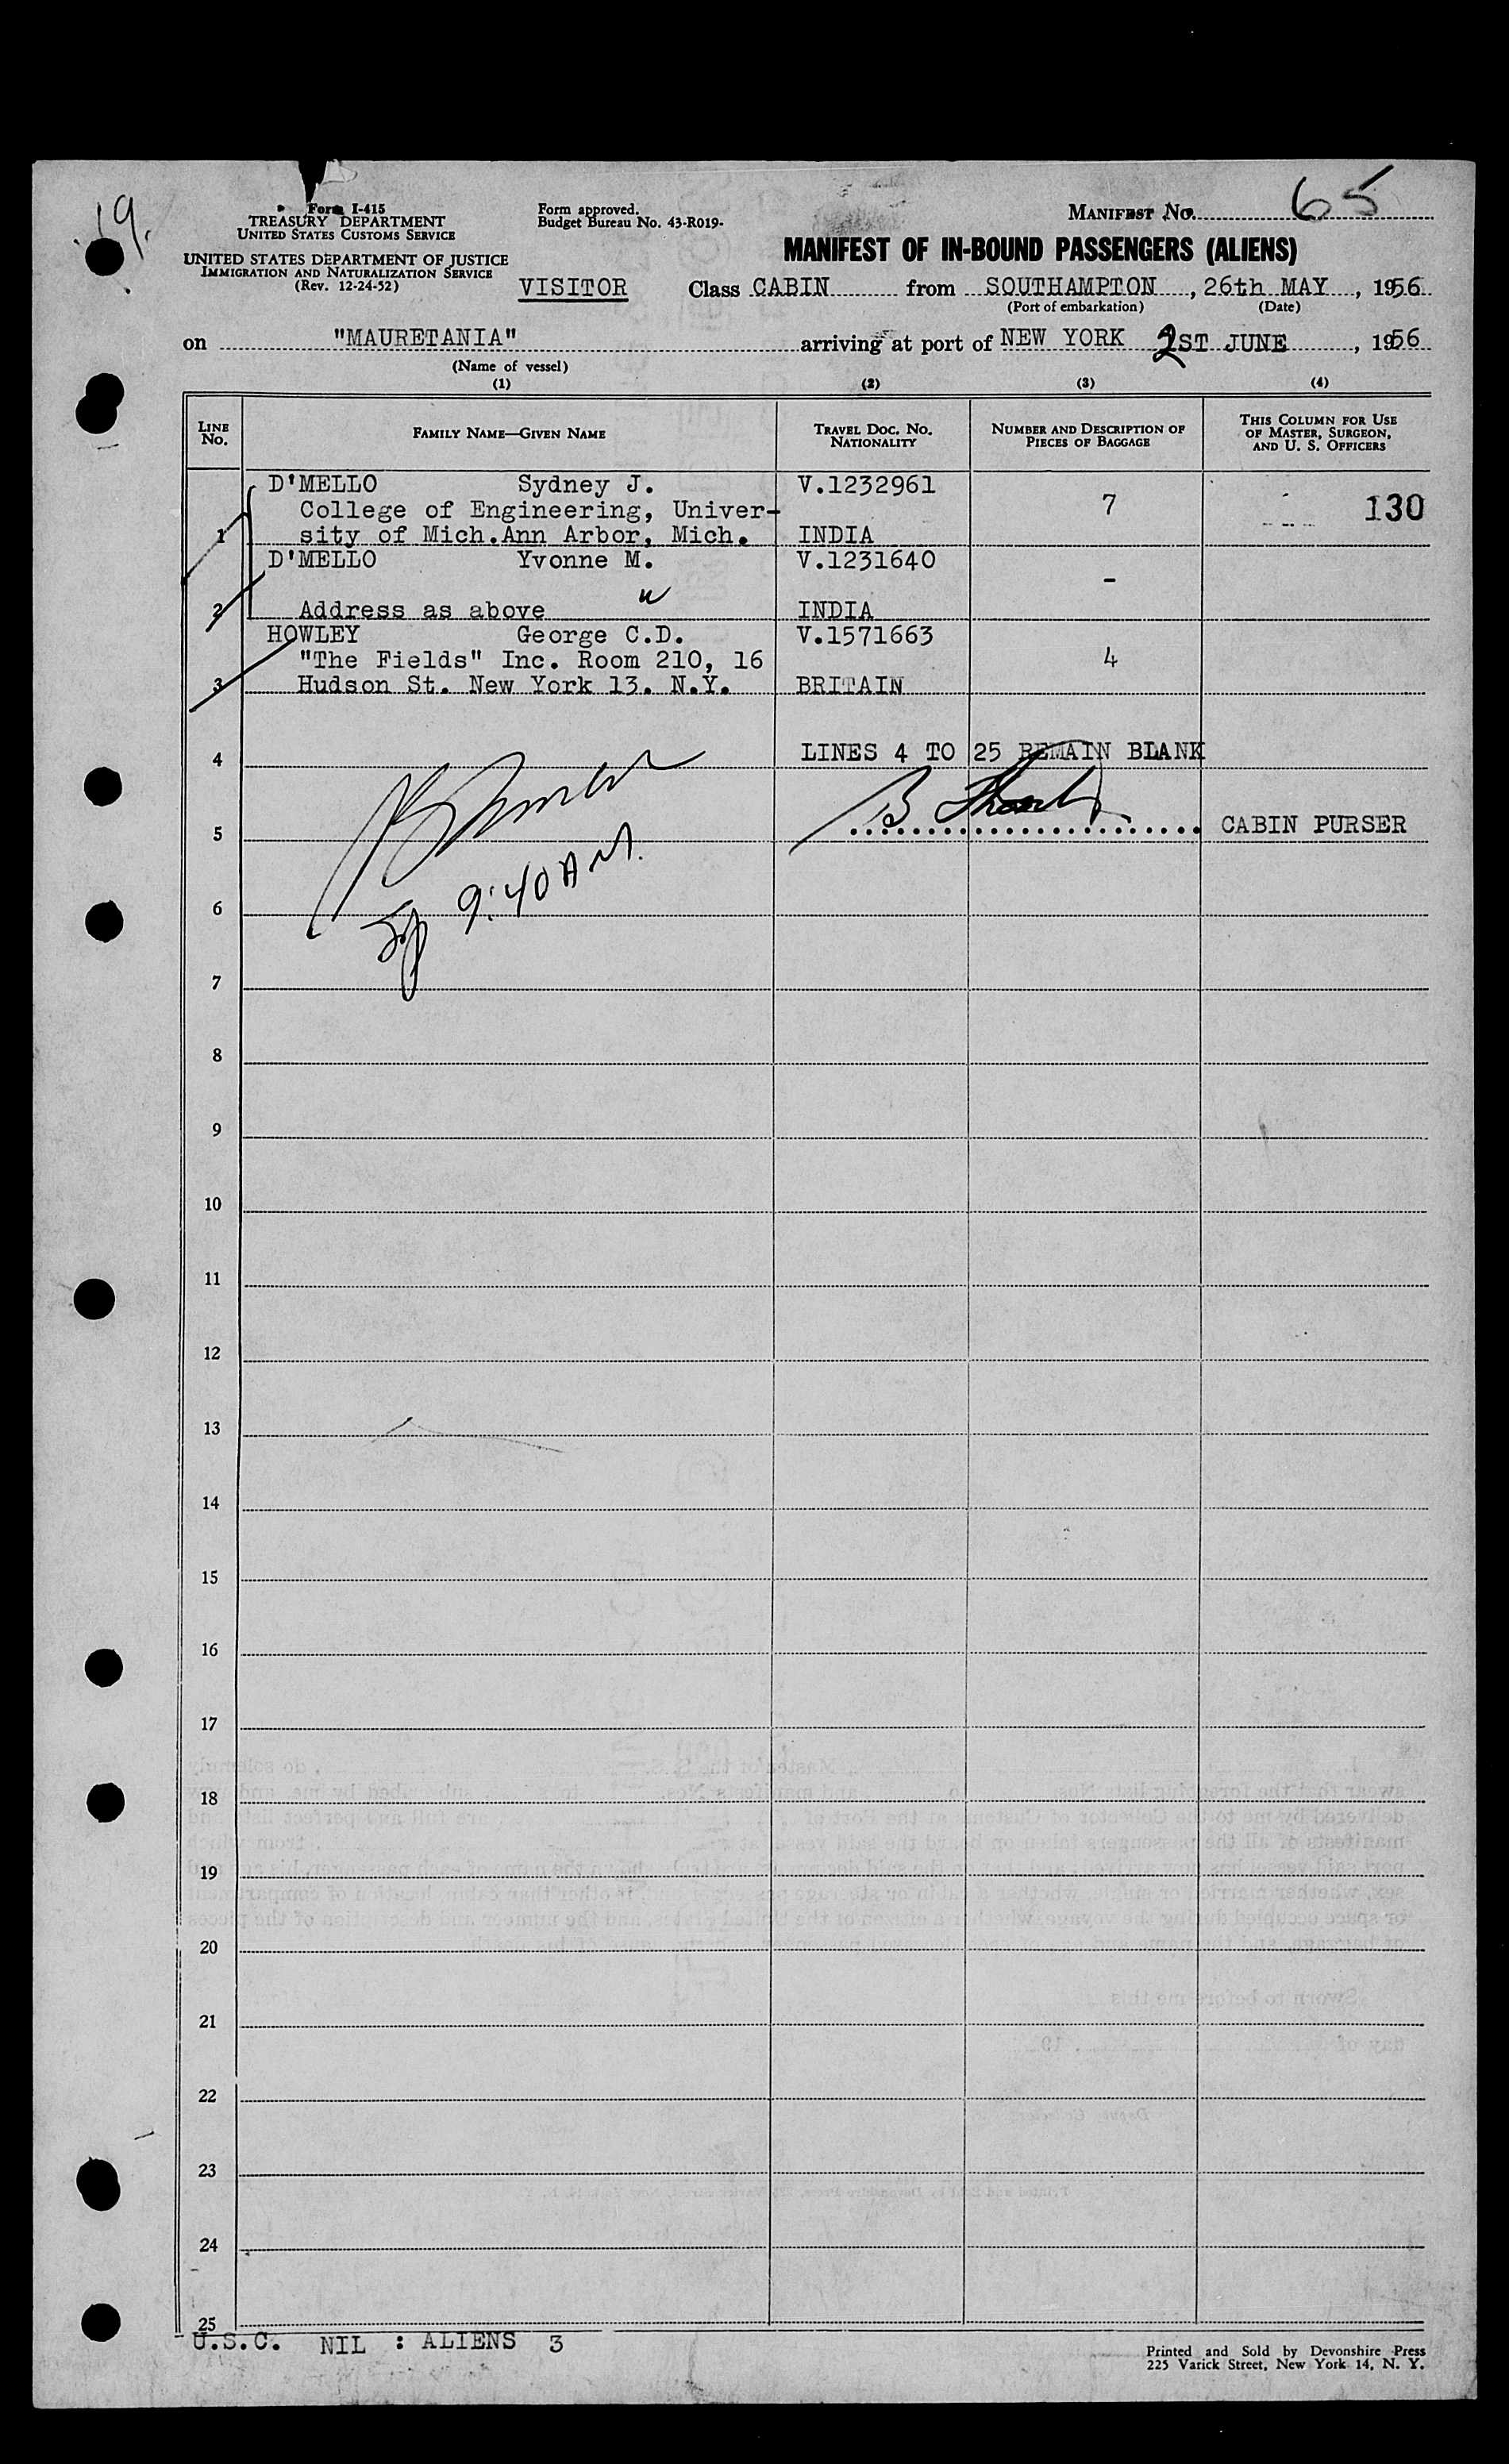 19.
Form I-415
TREASURY DEPARTMENT
UNITED STATES CUSTOMS SERVICE
UNITED STATES DEPARTMENT OF JUSTICE
IMMIGRATION AND NATURALIZATION SERVICE
(Rev. 12-24-52)
Form approved.
Budget Bureau No. 43-R019-
MANIFEST No. 65
MANIFEST OF IN-BOUND PASSENGERS (ALIENS)
VISITOR Class CABIN from SOUTHAMPTON, 26th MAY, 1956
(Port of embarkation) (Date)
on "MAURETANIA" arriving at port of NEW YORK 2ST JUNE, 1956
(Name of vessel)
(1) (2) (3) (4)
LINE No. FAMILY NAME—GIVEN NAME TRAVEL DOC. NO. NATIONALITY NUMBER AND DESCRIPTION OF PIECES OF BAGGAGE THIS COLUMN FOR USE OF MASTER, SURGEON, AND U. S. OFFICERS
D'MELLO Sydney J. V.1232961
College of Engineering, Univer- 7 130
1 sity of Mich.Ann Arbor, Mich. INDIA
D'MELLO Yvonne M. V.1231640
-
2 Address as above INDIA
HOWLEY George C.D. V.1571663
"The Fields" Inc. Room 210, 16 4
3 Hudson St. New York 13. N.Y. BRITAIN
4 LINES 4 TO 25 REMAIN BLANK
5 CABIN PURSER
9:40 AM.
6
7
8
9
10
11
12
13
14
15
16
17
18
19
20
21
22
23
24
25
U.S.C. NIL : ALIENS 3
Printed and Sold by Devonshire Press
225 Varick Street, New York 14, N. Y.